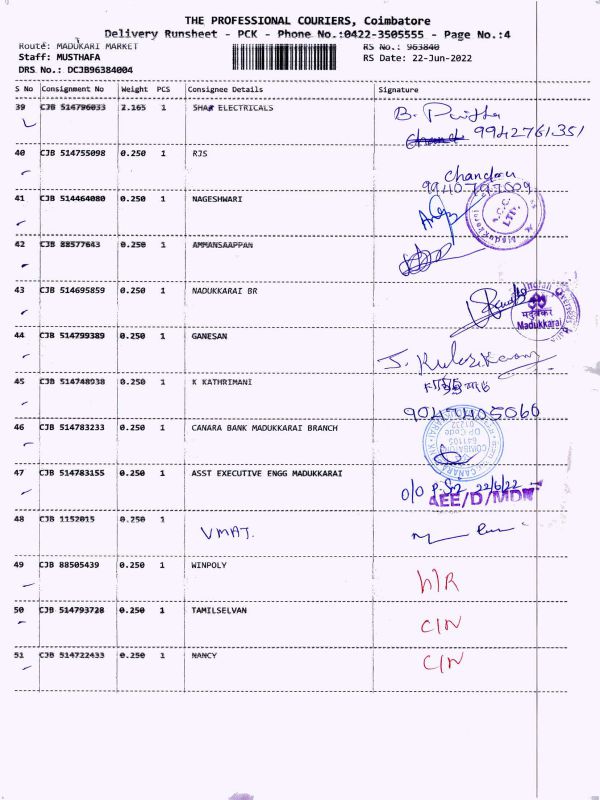 THE PROFESSIONAL COURIERS, Coimbatore
Delivery Runsheet - PCK - Phone No.:0422-3505555 - Page No.:4
Route: MADUKARI MARKET RS No.: 963840
Staff: MUSTHAFA RS Date: 22-Jun-2022
DRS No.: DCJB96384004
S No Consignment No Weight PCS Consignee Details Signature
39 CJB 514796033 2.165 1 SHAR ELECTRICALS
9942761351
40 CJB 514755098 0.250 1 RJS
Chandru
9940797009
41 CJB 514464080 0.250 1 NAGESHWARI
A.C.C. LTD.
42 CJB 88577643 0.250 1 AMMANSAAPPAN
43 CJB 514695859 0.250 1 NADUKKARAI BR
Indian Overseas
मदुक्करै
Madukkarai
44 CJB 514799389 0.250 1 GANESAN
45 CJB 514748938 0.250 1 K KATHRIMANI
9047405060
46 CJB 514783233 0.250 1 CANARA BANK MADUKKARAI BRANCH
COIMBATORE
641105
DP Code
01232
47 CJB 514783155 0.250 1 ASST EXECUTIVE ENGG MADUKKARAI
22/6/22
AEE/D/MDK
48 CJB 1152015 0.250 1
VMAT.
49 CJB 88505439 0.250 1 WINPOLY
h/R
50 CJB 514793728 0.250 1 TAMILSELVAN
C/N
51 CJB 514722433 0.250 1 NANCY
C/N